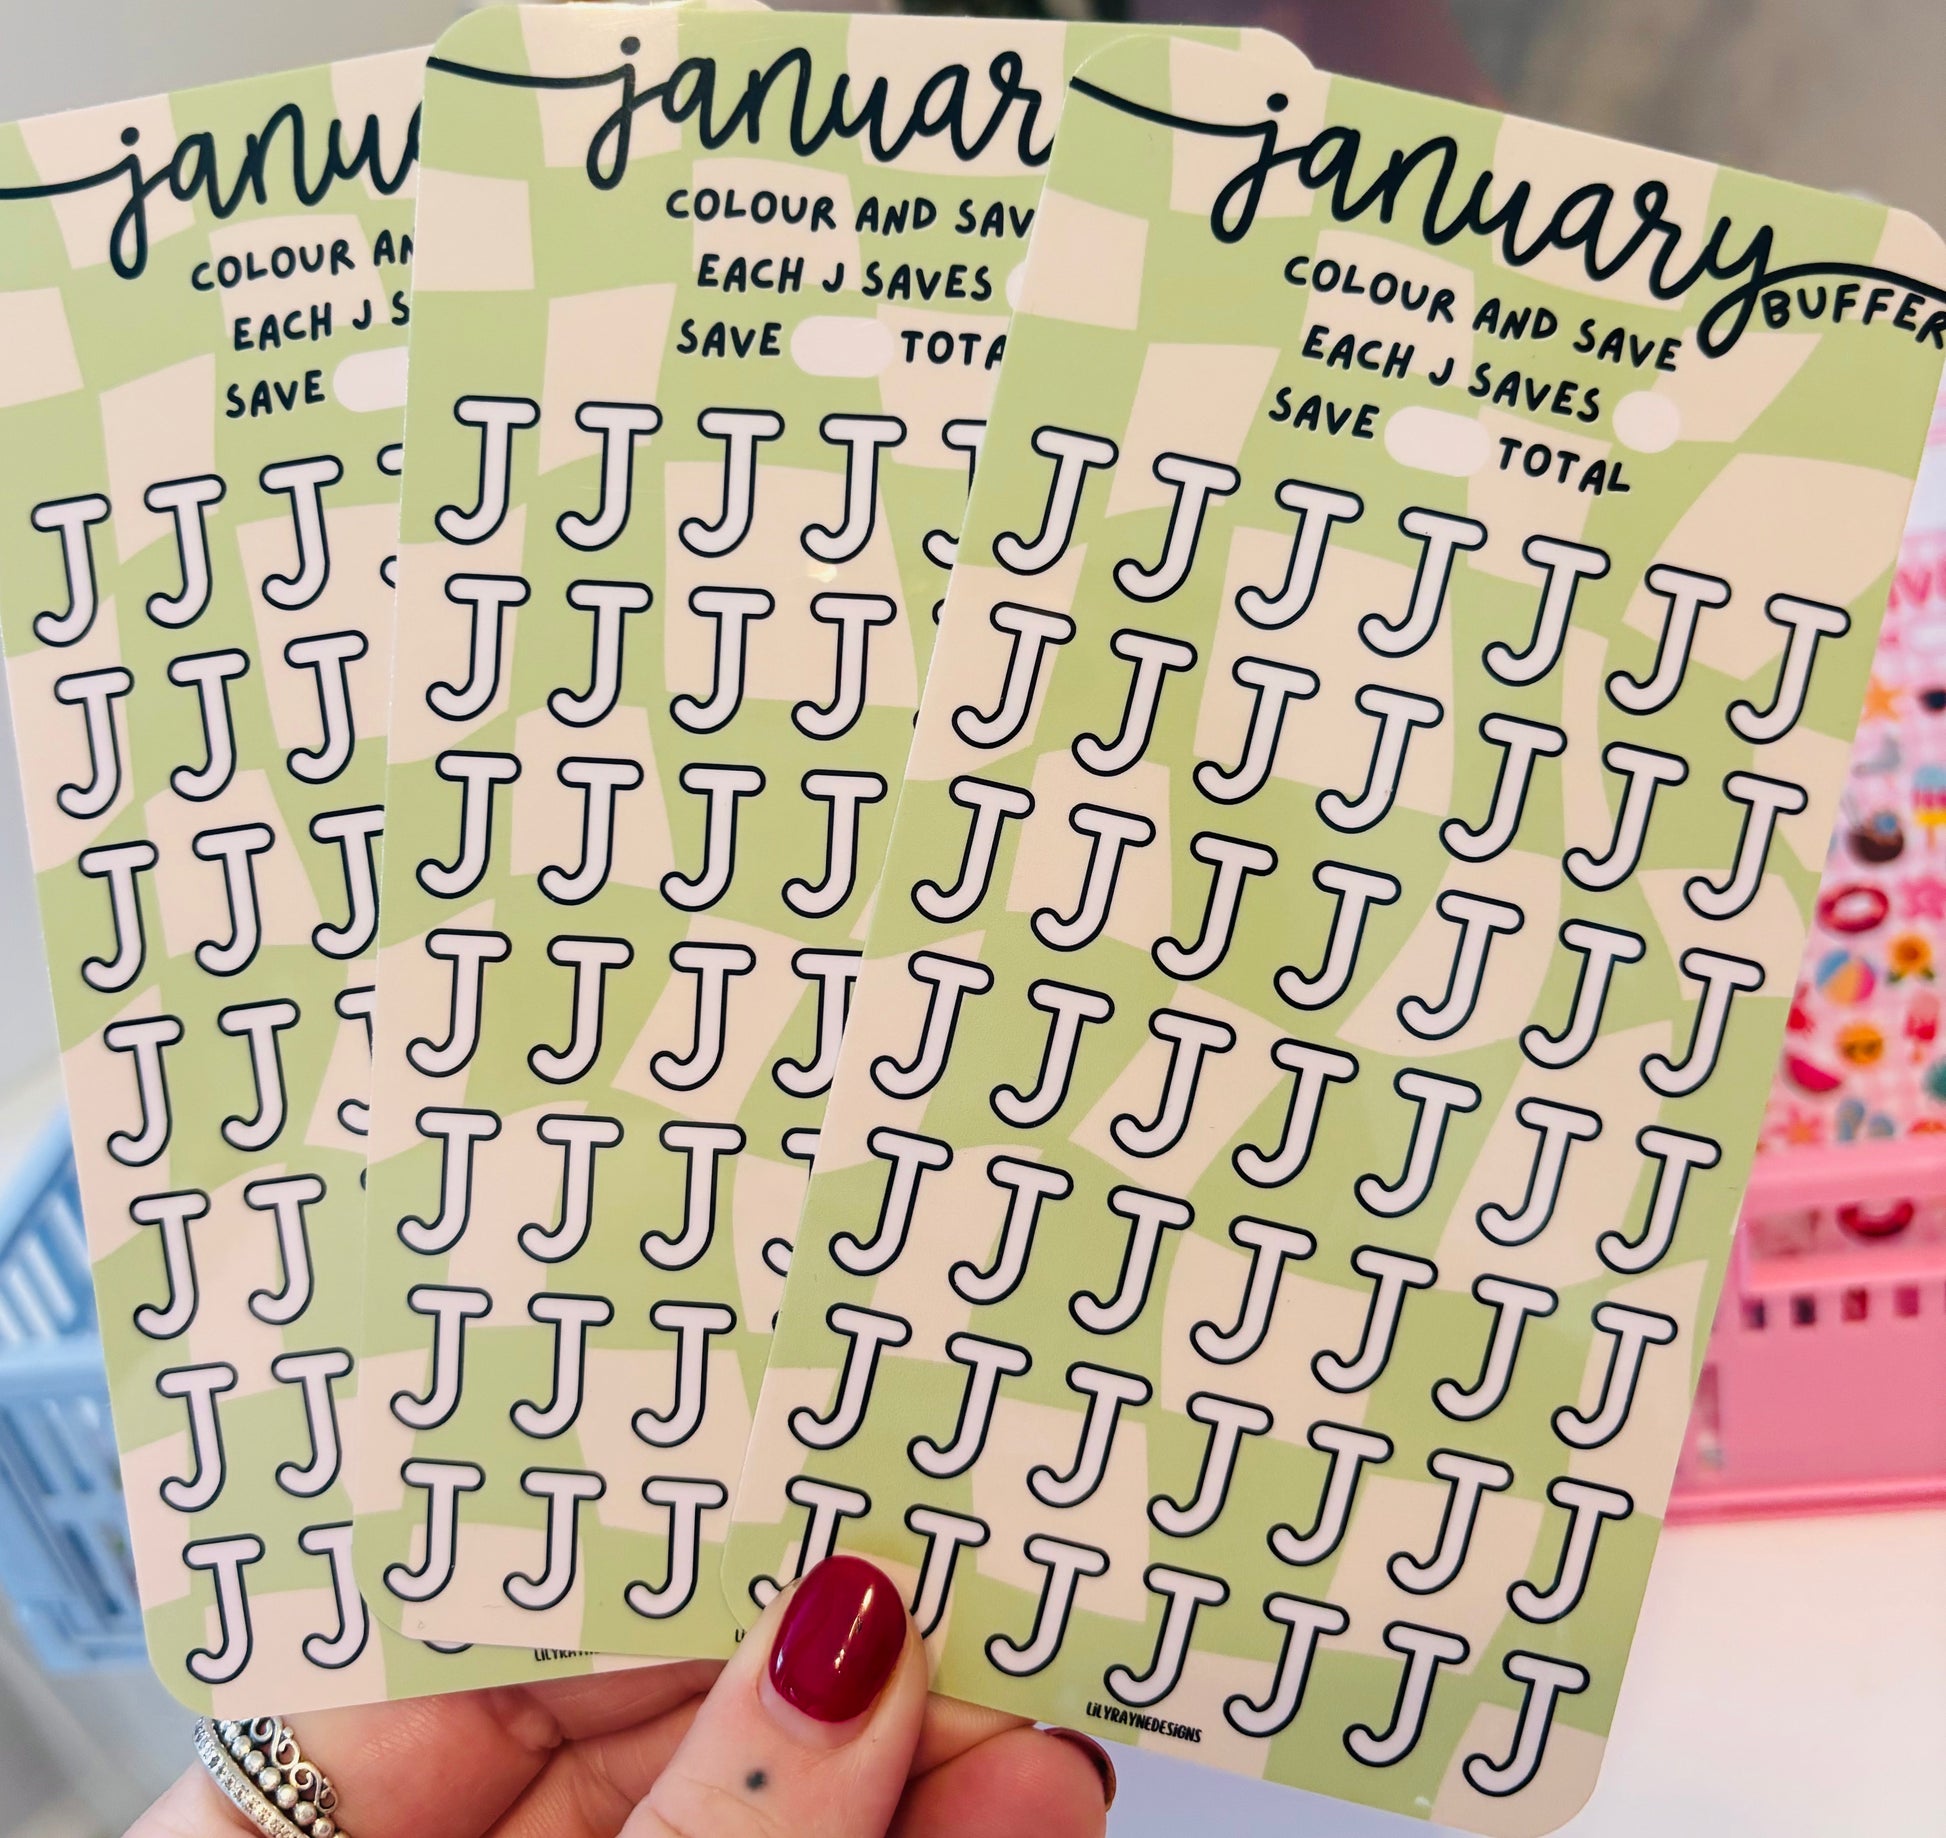 COLOUR AND
EACH J
SAVE
J J J
J J J
J J J
J J
J J
J J
J J
COLOUR AND
EACH J SAVES
SAVE TOTAL
J J J J
J J J J
J J J J
J J J J
J J J
J J J
J J J
january
BUFFER
COLOUR AND SAVE
EACH J SAVES
SAVE TOTAL
J J J J J J J
J J J J J J J
J J J J J J J
J J J J J J J
J J J J J J J
J J J J J J J
J J J J J J J
LiLYRAYNEDESiGNS